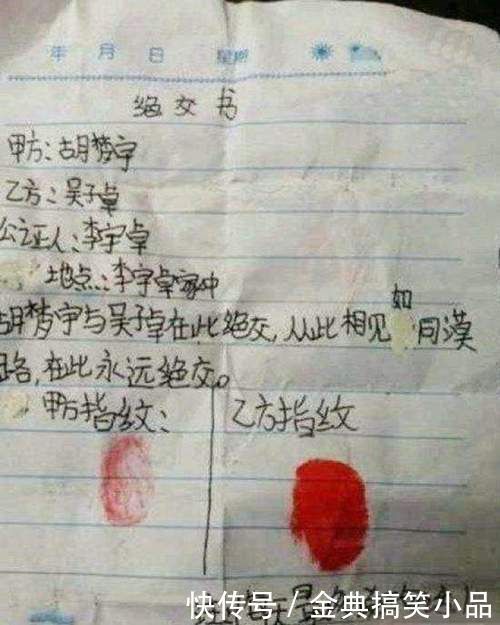 年 月 日 星期
绝交书
甲方:胡梦宇
乙方:吴子卓
公证人:李宇卓
地点:李宇卓家中
胡梦宇与吴子卓在此绝交,从此相见如同漠
路,在此永远绝交。
甲方指纹: 乙方指纹
快传号 / 金典搞笑小品